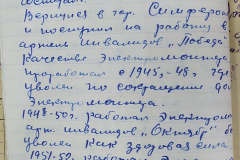 Вернулся в гор. Симферо
и поступил на работу в
артель инвалидов „Победа"
качестве электромонтер
проработал с 1945г-48г
уволен по сокращению
электромонтера.
1948-50г. работал электром
арт. инвалидов „Октябрь"
уволен как здоровая сила
1951-52 работал